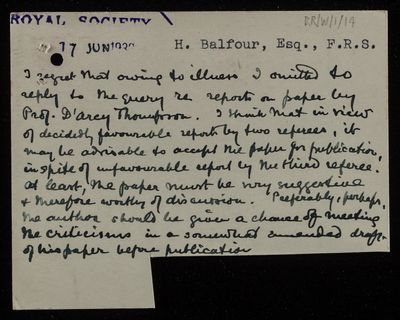 ROYAL SOCIETY
RR/W/1/14
17 JUN 193
H. Balfour, Esq., F.R.S.
I regret that owing to illness I omitted to
reply to the query re reports on paper by
Prof. D'Arcy Thompson. I think that in view
of decidedly favourable reports by two referees, it
may be advisable to accept the paper for publication,
in spite of unfavourable report by the third referee.
At least, the paper must be very suggestive
& therefore worthy of discussion. Preferably, perhaps,
the author should be given a chance of meeting
the criticisms in a somewhat emended draft
of his paper before publication